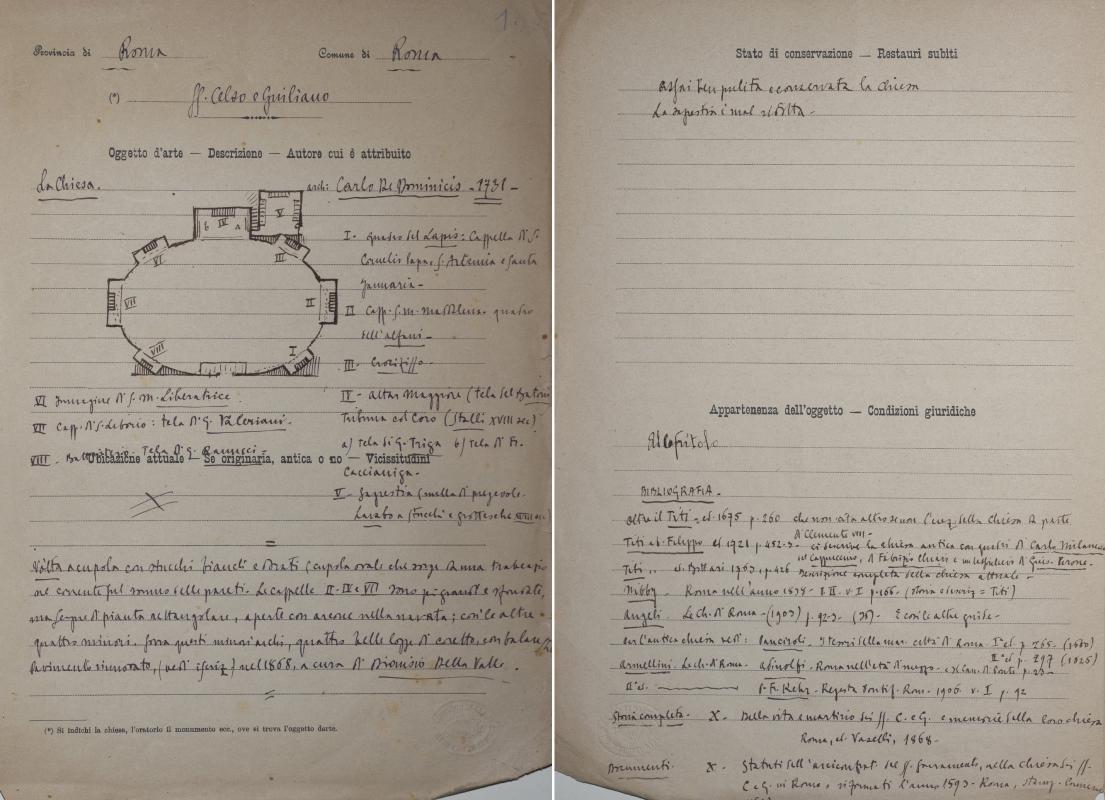 1.
Provincia di Roma Comune di Roma
(*) SS. Celso e Giuliano
Oggetto d'arte — Descrizione — Autore cui è attribuito
La Chiesa. arch: Carlo De Dominicis - 1731 -
V
b IV a
VI
III
VII
II
VIII
I
I - quadro del Lapis: Cappella di S.
Cornelio Papa, S. Artemia e Santa
Januaria -
II Capp. S. M. Maddalena - quadro
dell'Alfani -
III - Crocifisso -
IV - Altar Maggiore (tela del Batoni
Tribuna col Coro (Stalli XVIII sec)
a) tela di G. Triga b) tela di Fr.
Caccianiga -
V - Sagrestia
Lavabo a stucchi e grottesche XVIII sec)
VI Immagine di S. M. Liberatrice.
VII Capp. di S. Liborio: tela di G. Valeriani.
VIII - tela di G. Ranucci -
Ubicazione attuale — Se originaria, antica o no — Vicissitudini
Volta a cupola con stucchi bianchi e dorati (cupola ovale che sorge da una trabeazio
ne corrente sul sommo delle pareti. Le cappelle II - IV e VII sono più grandi e sfondate,
ma sempre di pianta rettangolare, aperte con arcone nella navata; così le altre
quattro minori. Sovra questi minori archi, quattro belle logge di coretto, con balaus
Pavimento rinnovato, (vedi iscriz) nel 1868, a cura di Dionisio Della Valle.
(*) Si indichi la chiesa, l'oratorio il monumento ecc., ove si trova l'oggetto darte.
Stato di conservazione — Restauri subiti
Assai ben pulita e conservata la chiesa
La sagrestia è mal ridotta -
Appartenenza dell'oggetto — Condizioni giuridiche
Al Capitolo
BIBLIOGRAFIA.
Oltre il Titi - ed. 1675 p. 260 che non cita altro se non della chiesa da parte
di Clemente VIII -
Titi ed. Filippo ed 1721 p. 452-3 - ci descrive la chiesa antica con quadri di Carlo
un Cappuccino, di Fabrizio Chiari e un di Gius. Perone.
Titi ,, ed. Bottari 1763, p. 426 descrizione completa della chiesa attuale -
Nibby - Roma nell'anno 1838 - p. 166. = Titi)
Angeli. Le ch. di Roma - (1903) p. 92-3 - E così le altre guide -
per l'antica chiesa vedi: Panciroli. I tesori città di Roma I^a ed. p 265 - (1600)
II^a ed. p. 297 (1625)
Armellini. Le ch. di Roma - Adinolfi. Roma nell'età di mezzo
II^a ed. P. Fr. Kehr - Regesta Pontif. Rom. 1906 v. I p. 92
Storia completa - X - Della vita e martirio dei SS. C. e G. e memorie della loro chiesa
Roma, ed. Vaselli, 1868 -
Documenti. X - Statuti dell'arciconfrat. del SS. Sacramento, nella chiesa dei SS.
C e G. in Roma, riformati l'anno 1593 - Roma, stamp.